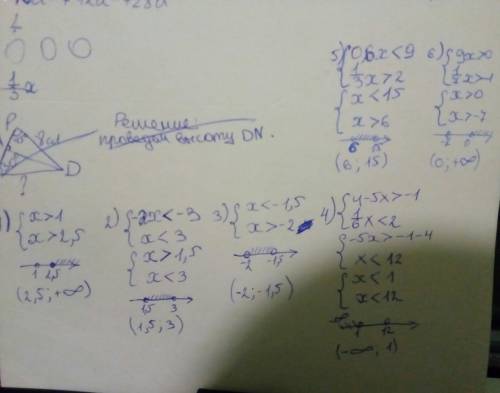 1/3 x
P
8см
D
?
Решение:
проведём высоту DN.
5) { 0,6x<9
{ 1/3x>2
{ x<15
{ x>6
6 15
(6; 15)
6) { 9x>0
{ x>0
{ x>-7
0
(0; +∞)
1) { x>1
{ x>2,5
1 2,5
(2,5; +∞)
2) { -2x<-3
{ x<3
{ x>1,5
{ x<3
1,5 3
(1,5; 3)
3) { x<-1,5
{ x>-2
-2 -1,5
(-2; -1,5)
4) { 4-5x>-1
{ 1/6x<2
{ -5x>-1-4
{ x<12
{ x<1
{ x<12
1 12
(-∞; 1)